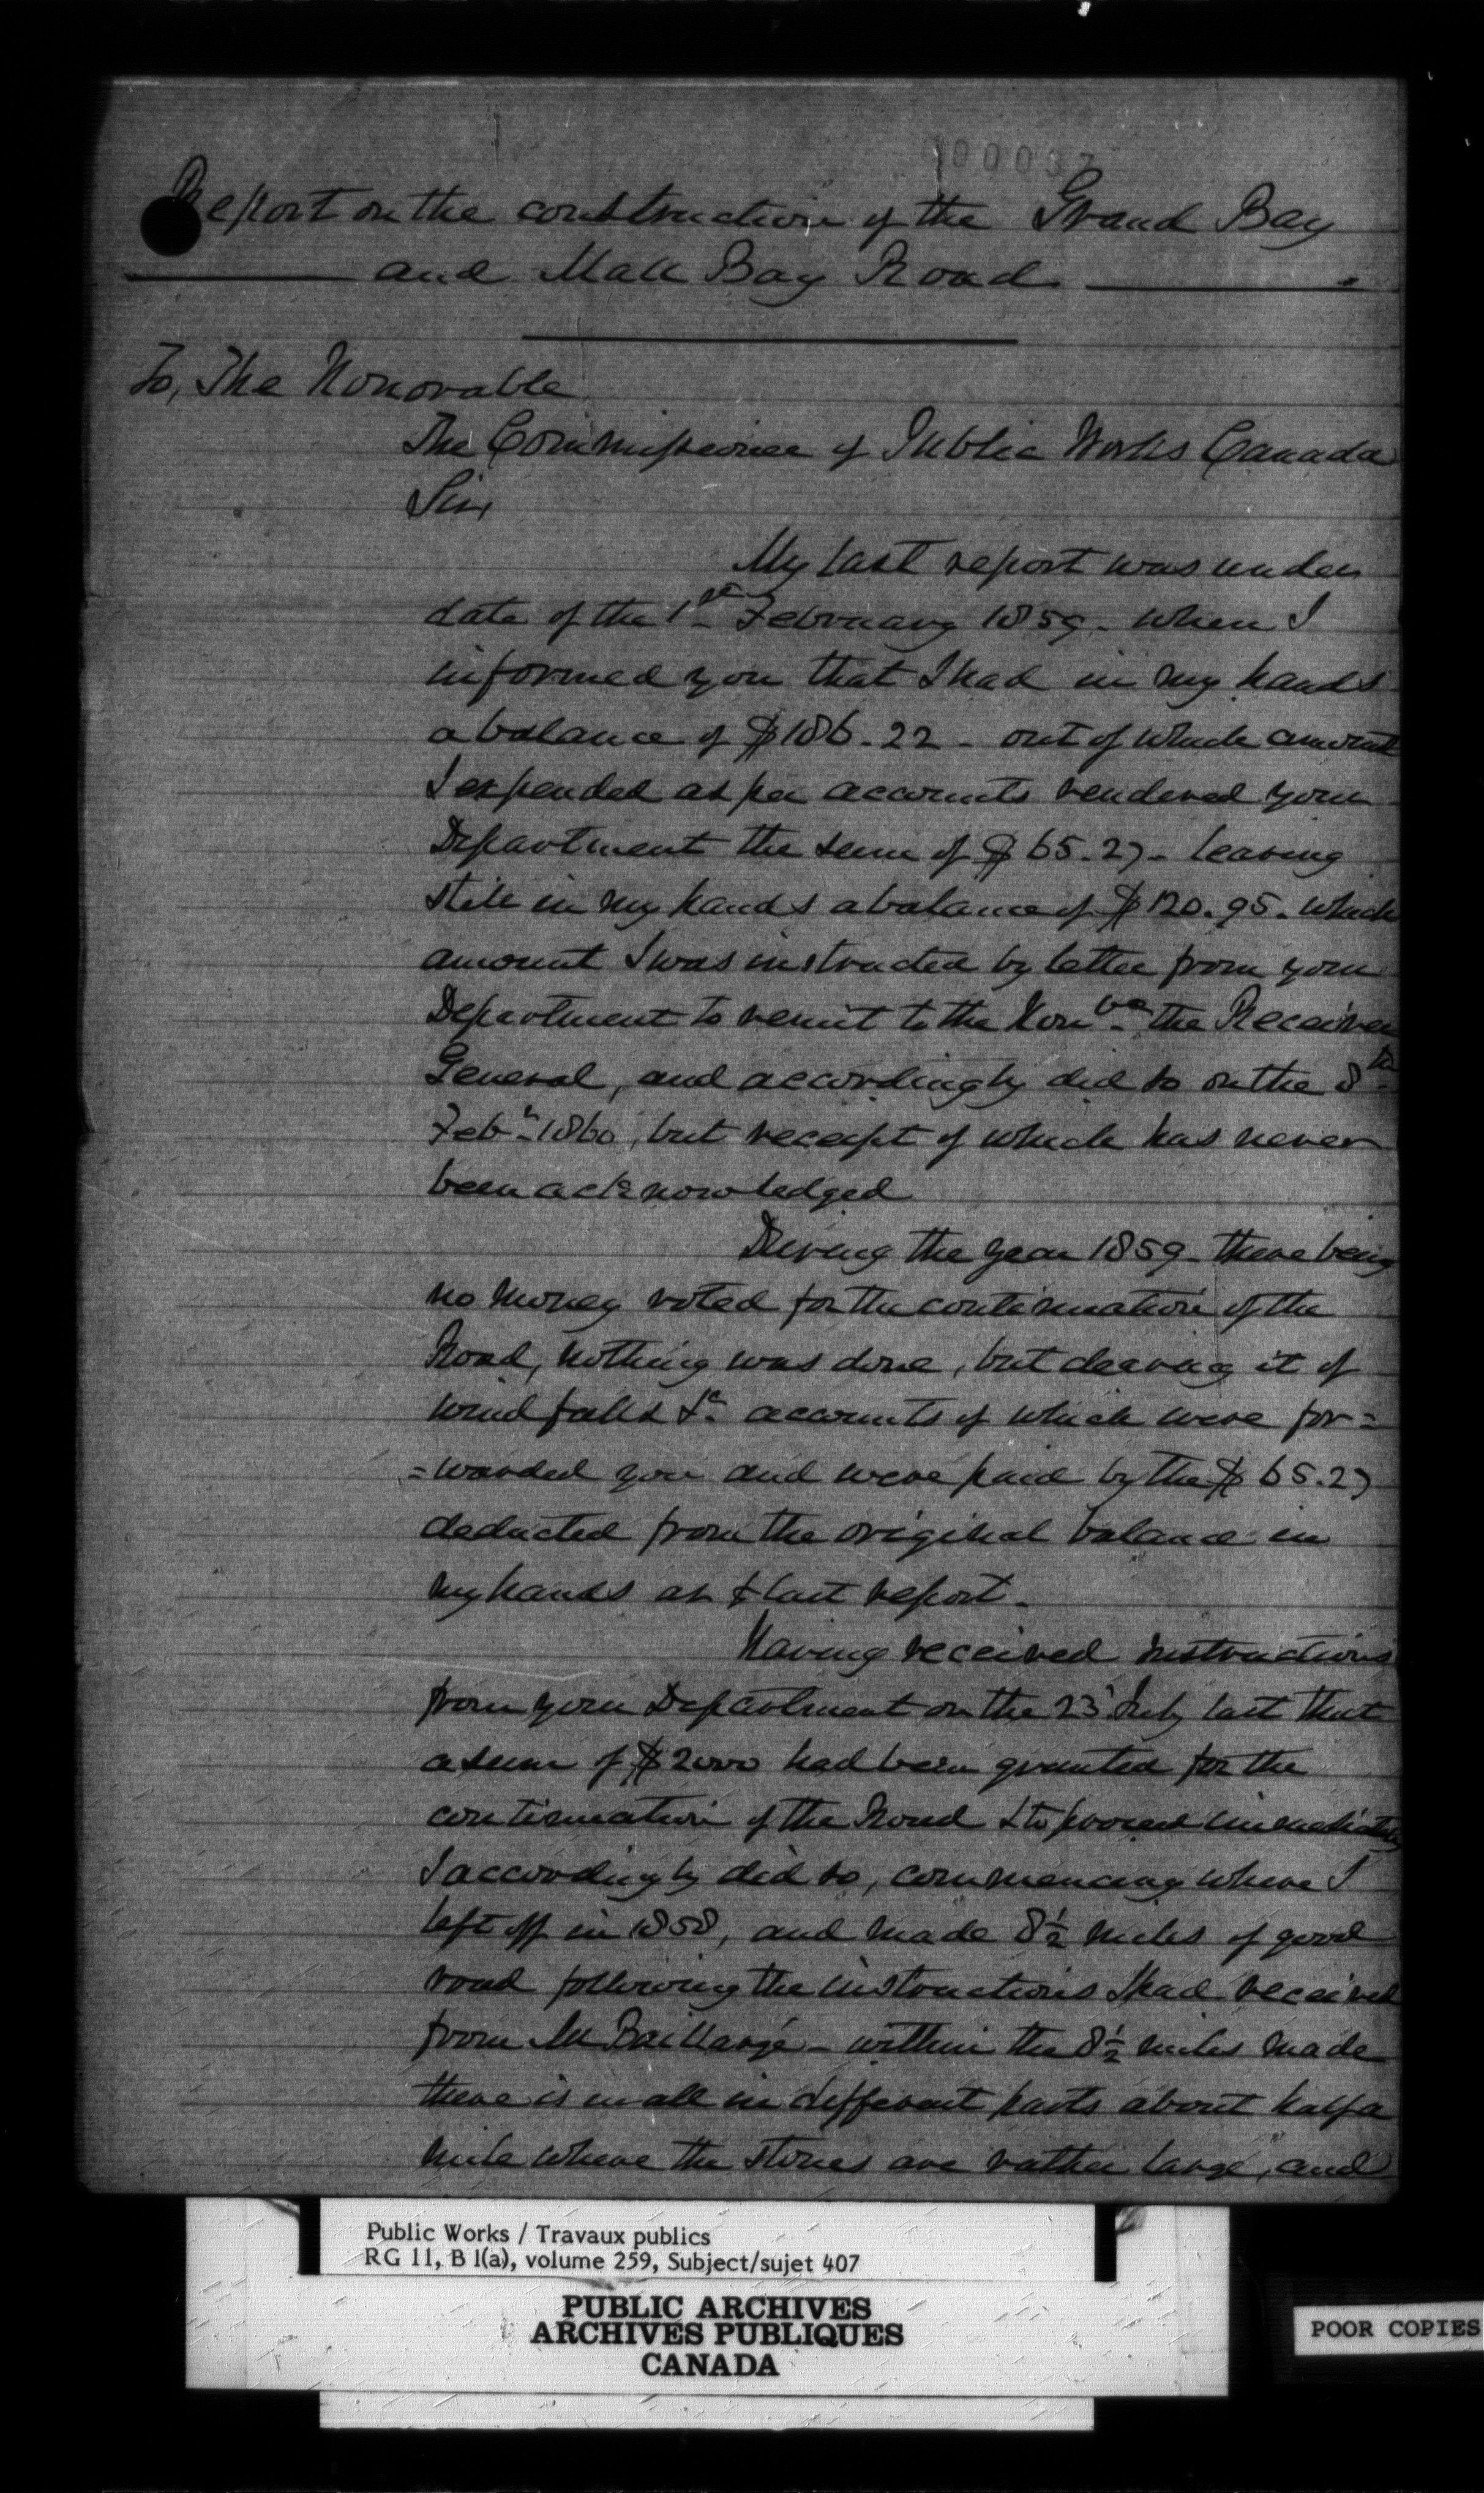 00037
Report on the construction of the Grand Bay
and Mall Bay Road.
To, The Honorable
The Commissioner of Public Works Canada
Sir,
My last report was under
date of the 1st February 1859 - when I
informed you that I had in my hands
a balance of $186.22 - out of which amount
I expended as per accounts rendered your
Department the sum of $65.27 - leaving
still in my hands a balance of $120.95. which
amount I was instructed by letter from your
Department to remit to the Honble the Receiver
General, and accordingly did so on the 8th
Feby 1860, but receipt of which has never
been acknowledged
During the year 1859 - there being
no money voted for the continuation of the
Road, nothing was done, but clearing it of
wind falls &c accounts of which were for=
=warded you and were paid by the $65.27
deducted from the original balance in
my hands at last report.
Having received instructions
from your Department on the 23d July last that
a sum of $2000 had been granted for the
continuation of the Road & to proceed immediately
I accordingly did so, commencing where I
left off in 1858, and made 8½ miles of good
road following the instructions I had received
from Mr Baillargé - within the 8½ miles made
there is in all in different parts about half a
mile where the stones are rather large, and
Public Works / Travaux publics
RG 11, B 1(a), volume 259, Subject/sujet 407
PUBLIC ARCHIVES
ARCHIVES PUBLIQUES
CANADA
POOR COPIES